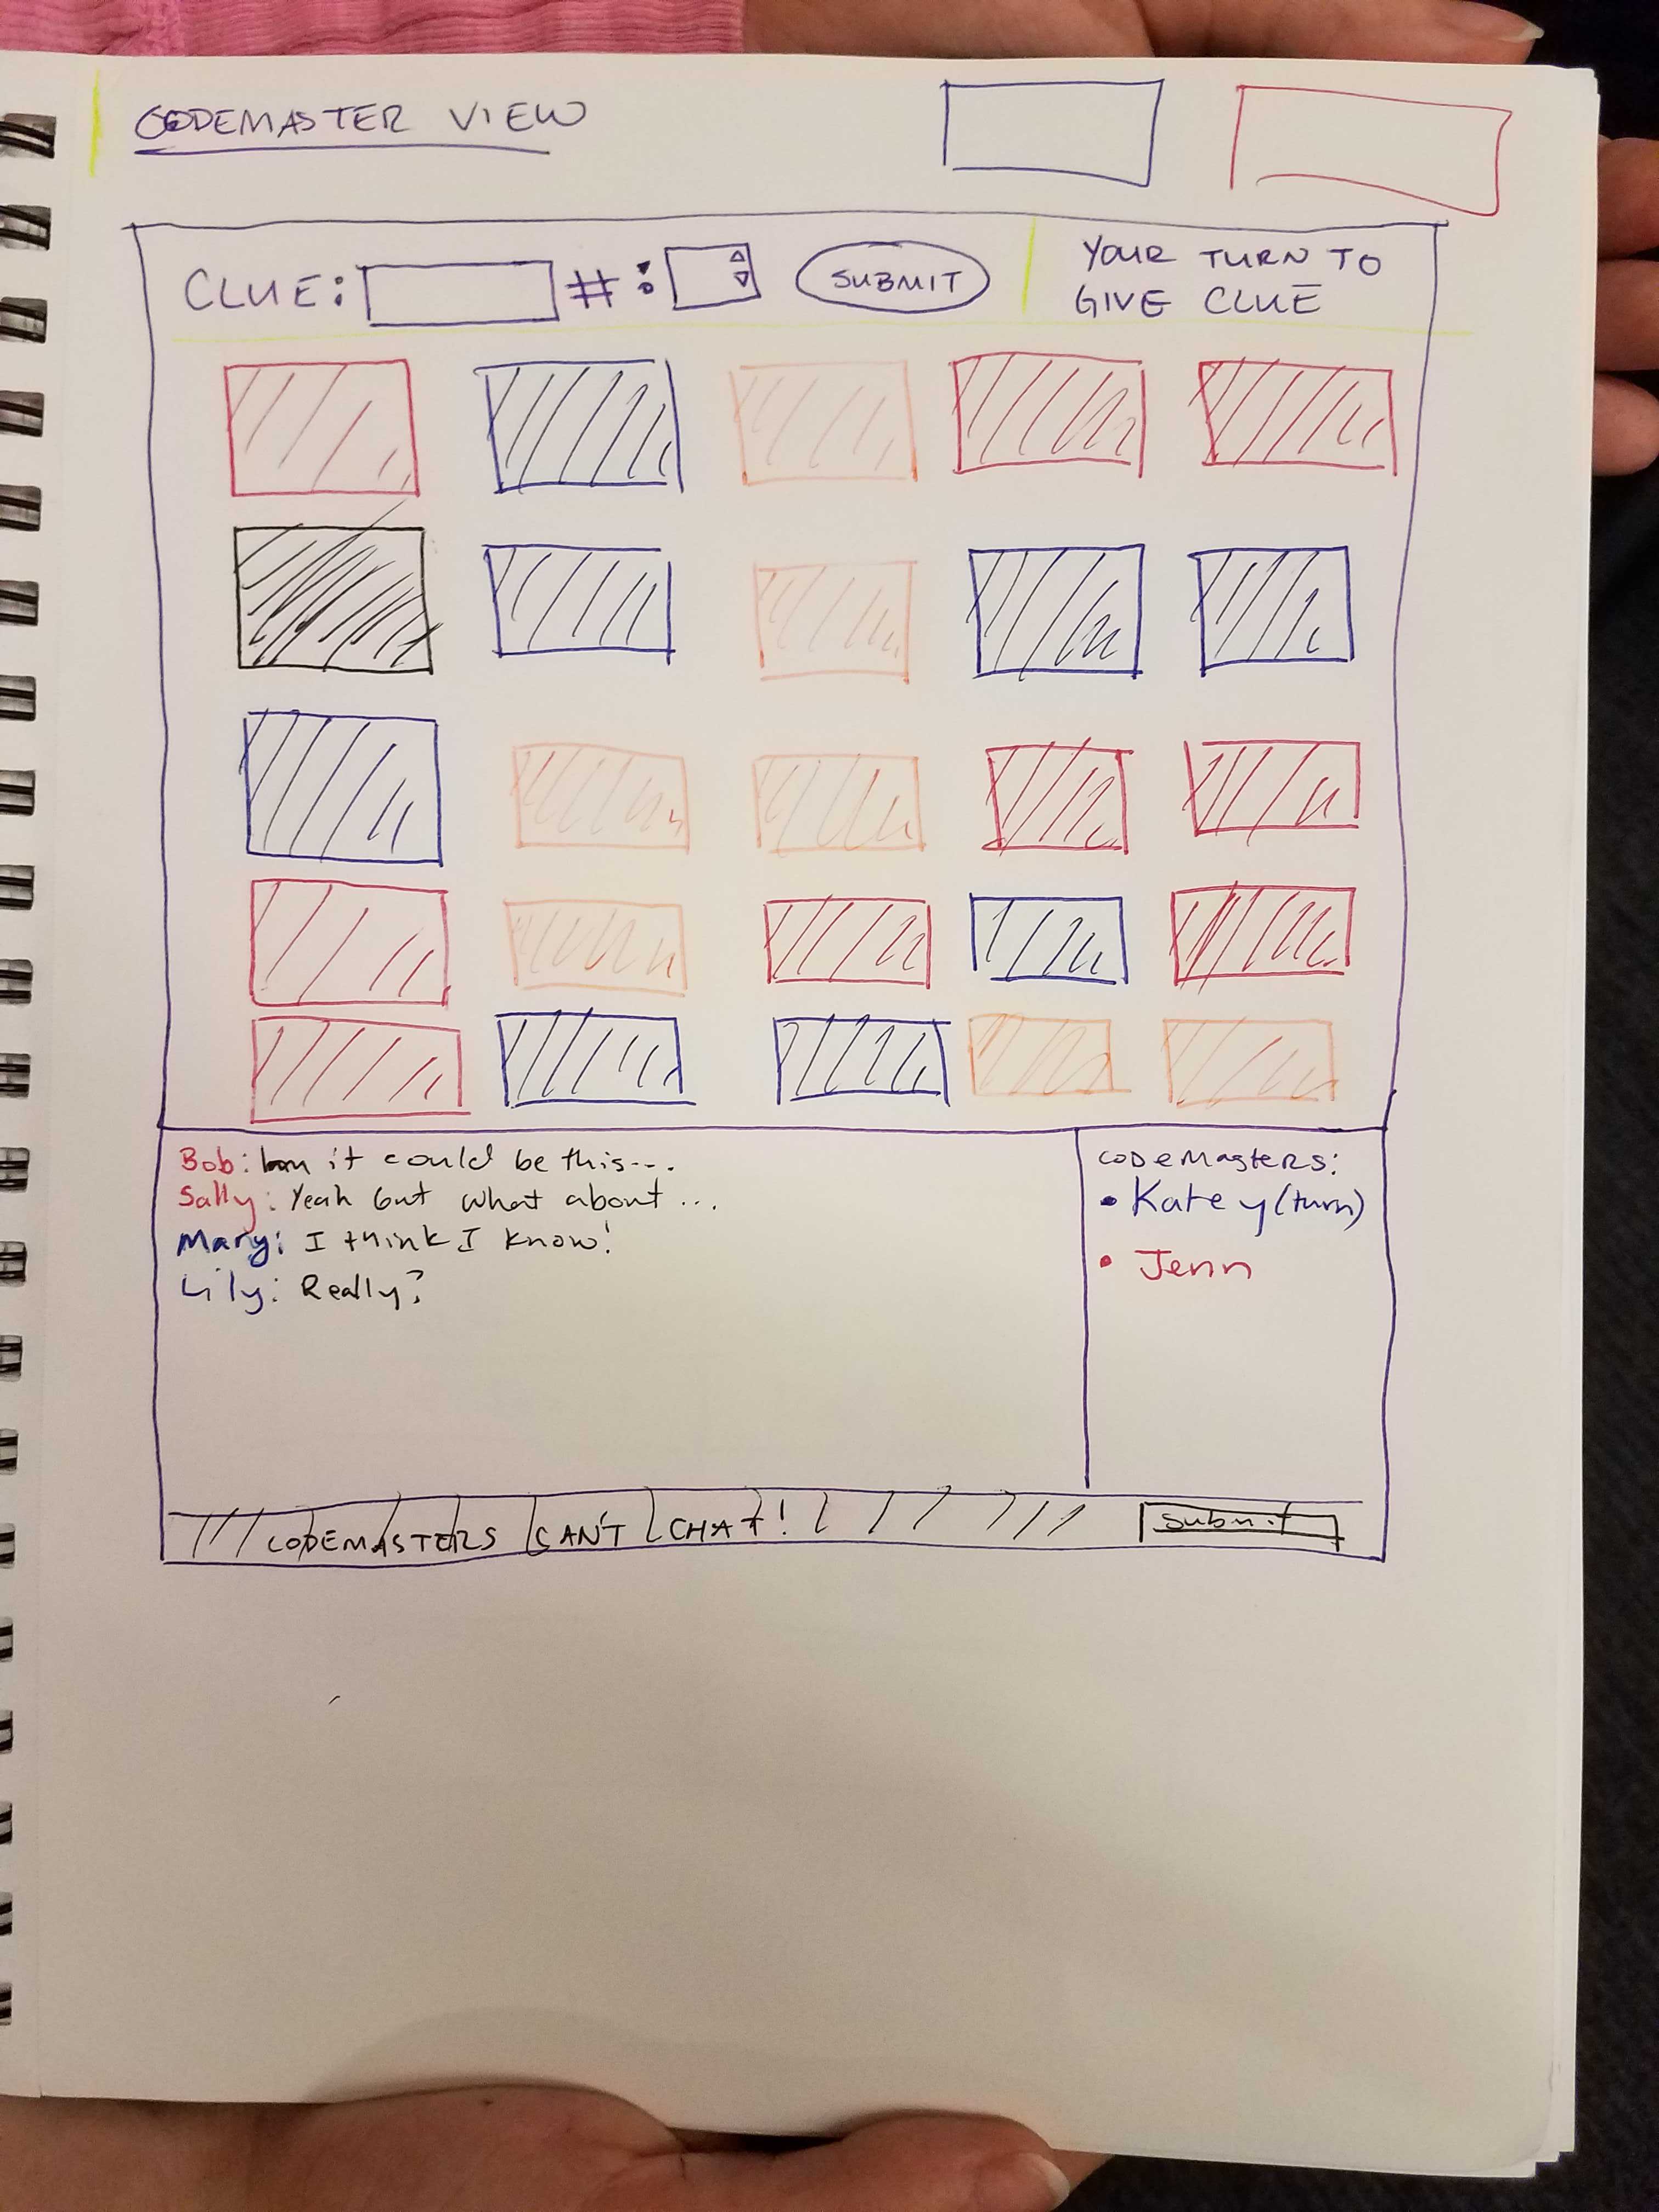 CODEMASTER VIEW
CLUE: #: SUBMIT
YOUR TURN TO
GIVE CLUE
Bob: it could be this...
Sally: Yeah but what about ...
Mary: I think I know!
Lily: Really?
CODEMASTERS:
• Katey (turn)
• Jenn
CODEMASTERS CAN'T CHAT!
Submit